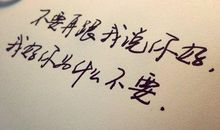 不要再跟我说你好.
我好你为什么不要.